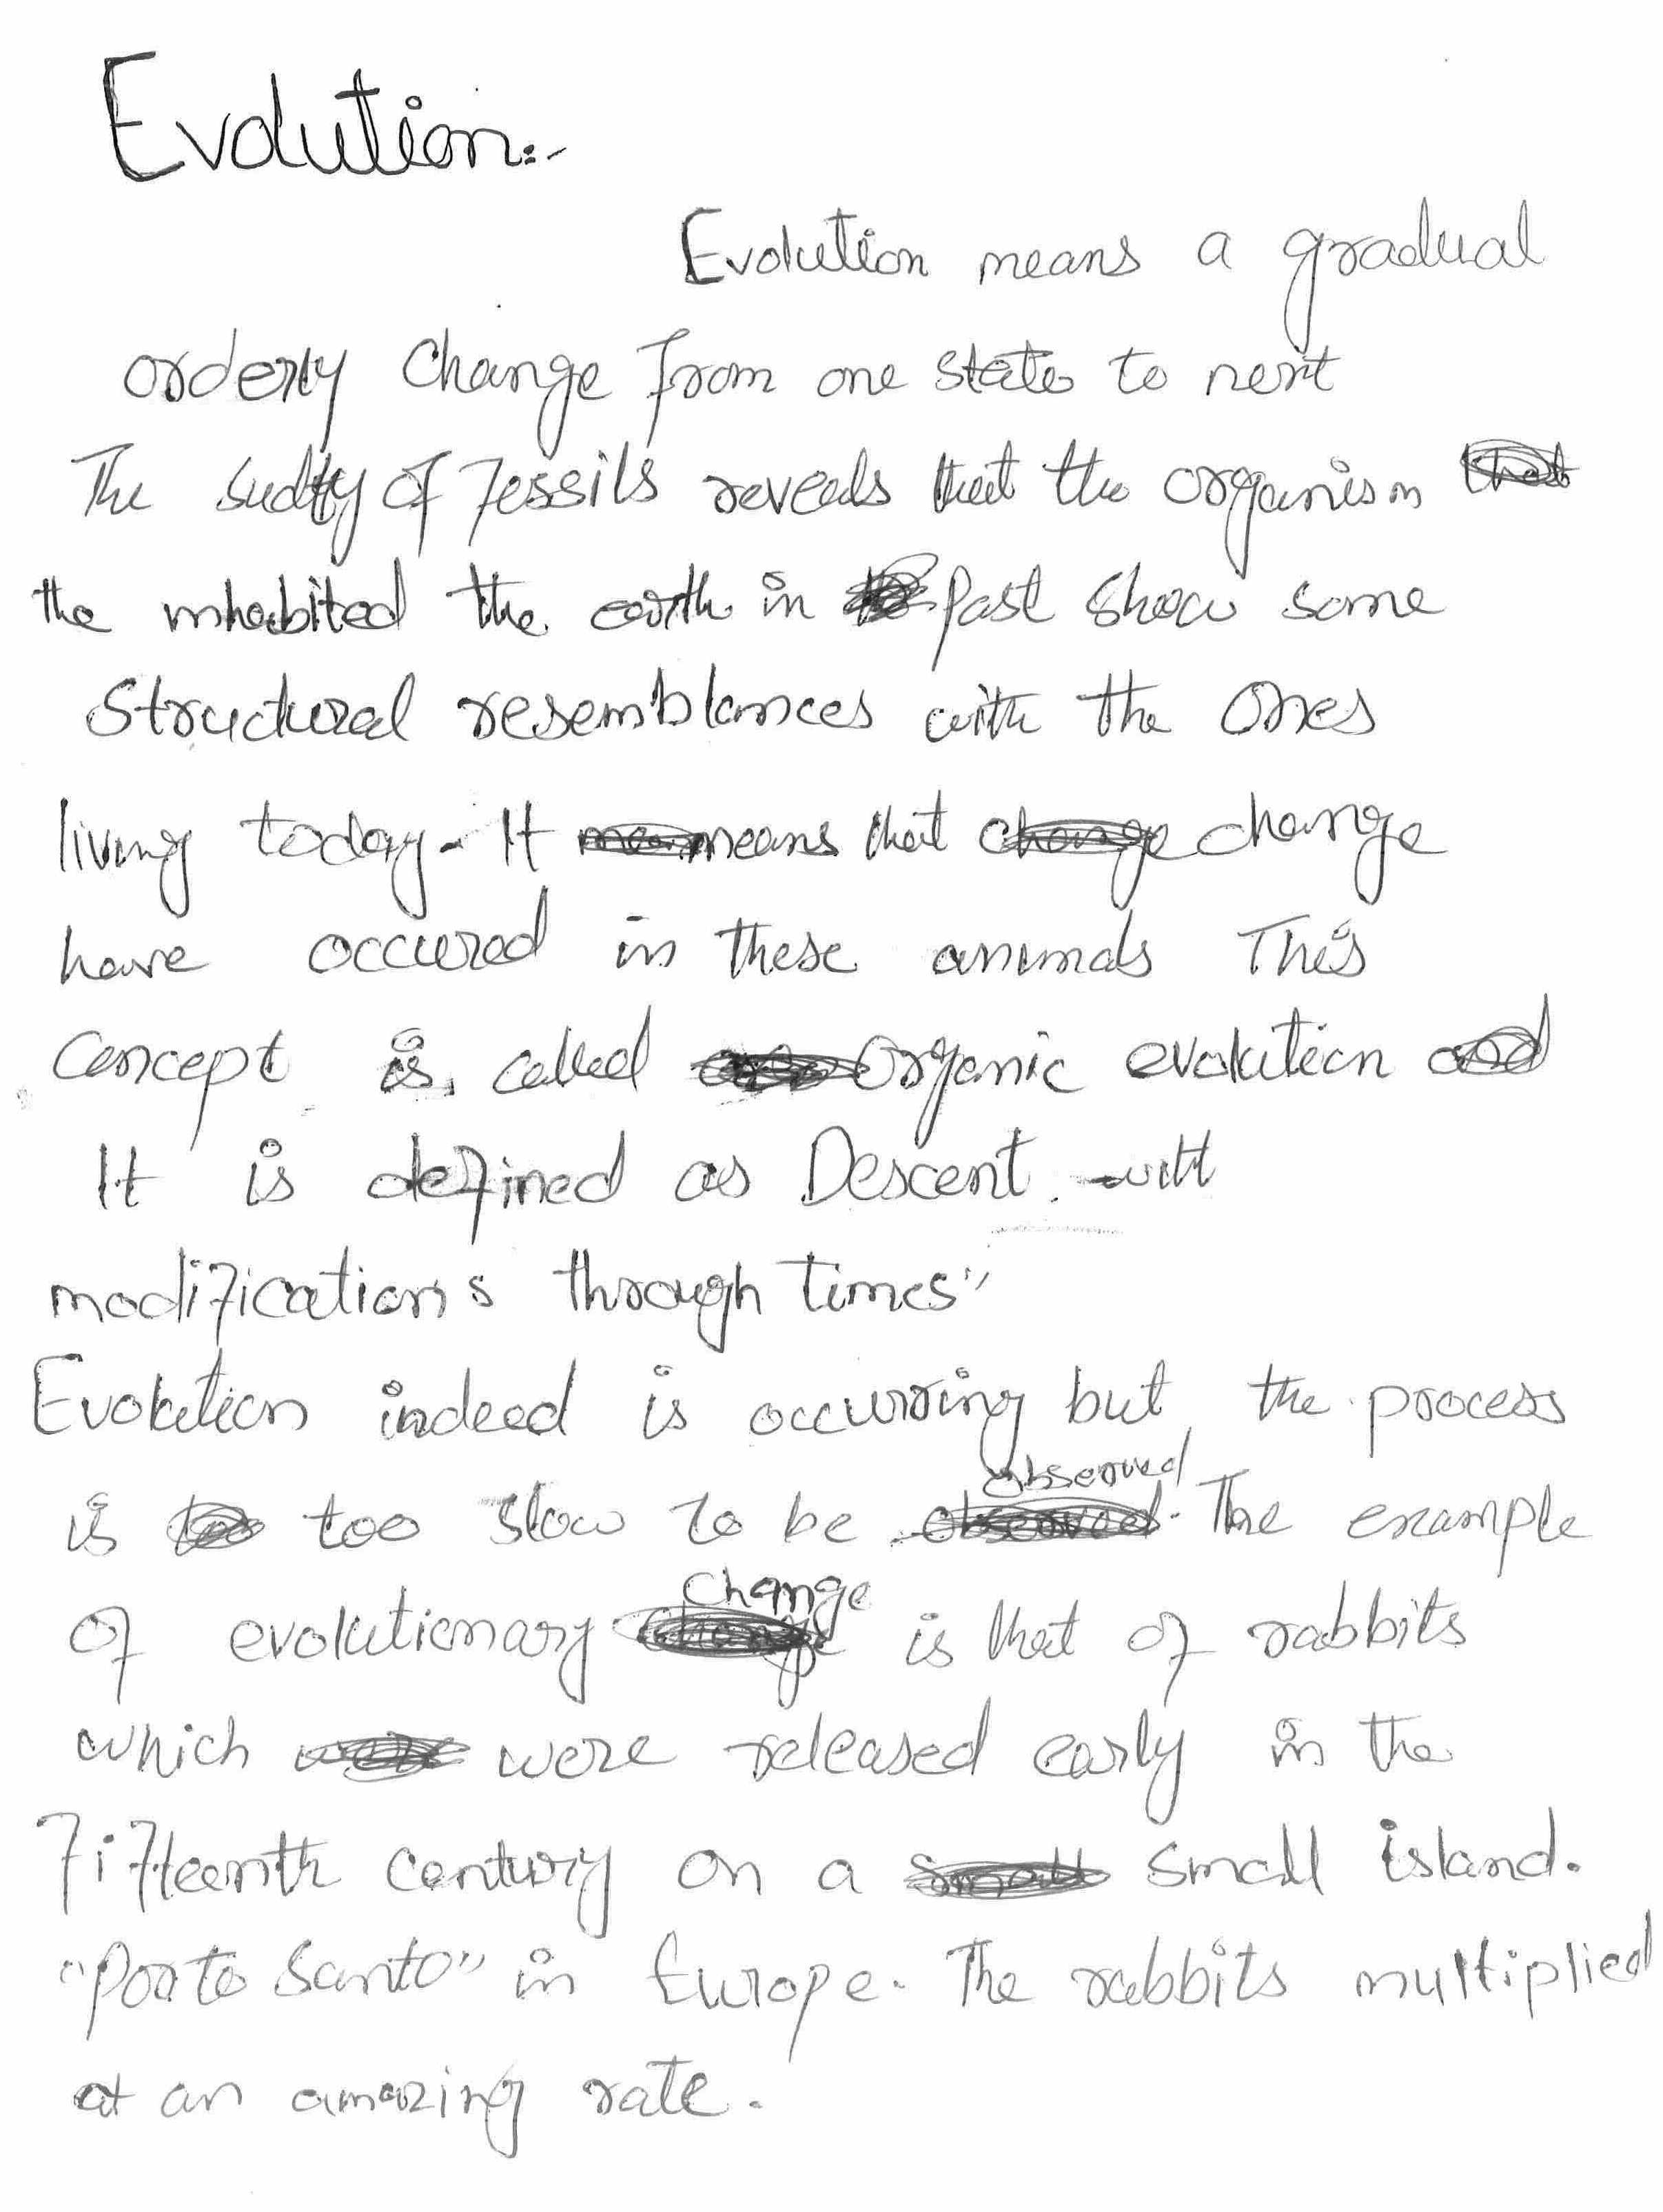 Evolution:-
Evolution means a gradual
orderly change from one state to next
The sudty of Fessils reveals that the organism
the inhabited the earth in past show some
Structural resemblances with the Ones
living today. It means that change
have occured in these animals This
Concept is called Organic evolution
It is defined as Descent with
modifications through times"
Evolution indeed is occurring but the process
is too slow to be observed. The example
of evolutionary Change is that of rabbits
which were released early in the
Fifteenth century on a small island.
"Porto Santo" in Europe. The rabbits multiplied
at an amazing rate.